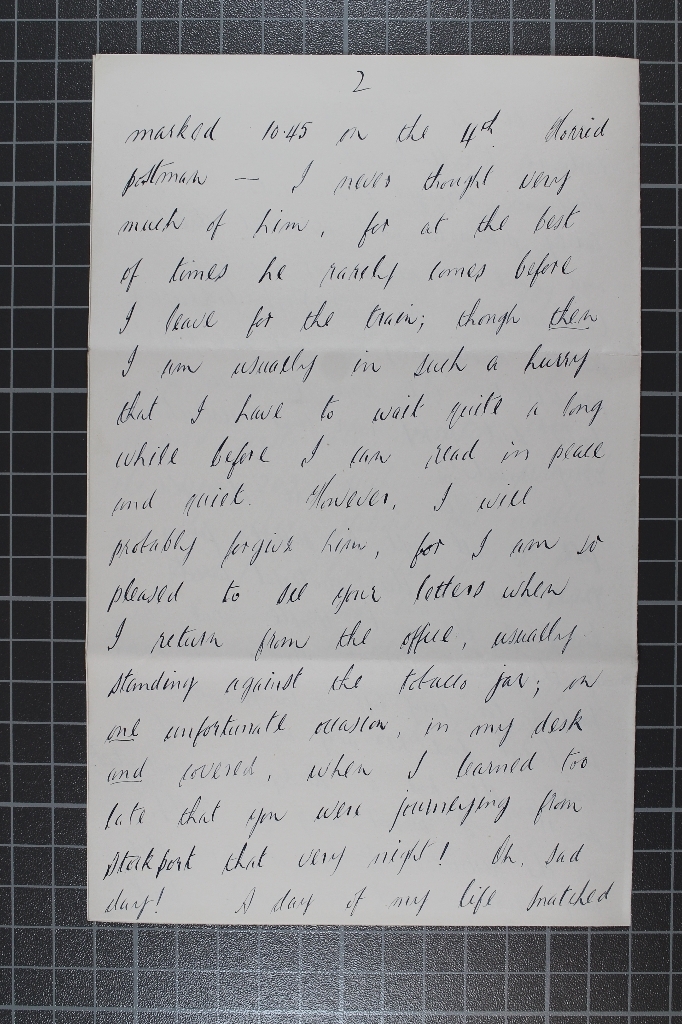 2
marked 10.45 on the 4th Horrid
postman — I never thought very
much of him, for at the best
of times he rarely comes before
I leave for the train; though then
I am usually in such a hurry
that I have to wait quite a long
while before I can read in peace
and quiet. However, I will
probably forgive him, for I am so
pleased to see your letters when
I return from the office, usually
standing against the tobacco jar; on
one unfortunate occasion, in my desk
and covered, when I learned too
late that you were journeying from
Stockport that very night! Oh, sad
day! A day of my life snatched